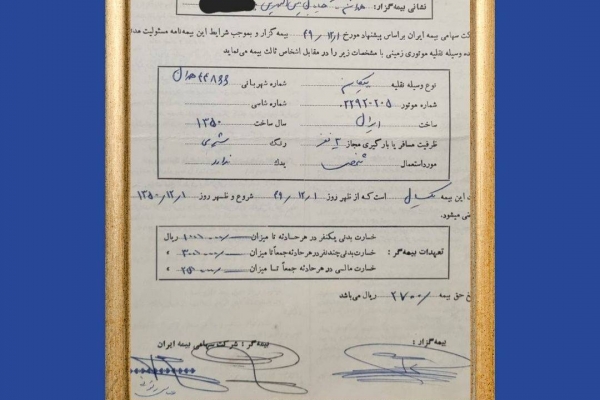 نشانی بیمه‌گزار:
کت سهامی بیمه ایران براساس پیشنهاد مورخ ۴۹/۱۲/۱ بیمه گزار و بموجب شرایط این بیمه‌نامه مسئولیت مدنی
ده وسیله نقلیه موتوری زمینی با مشخصات زیر را در مقابل اشخاص ثالث بیمه مینماید
نوع وسیله نقلیه پیکان شماره شهربانی
شماره موتور ۰۲۲۹۲-۲۰۵ شماره شاسی
ساخت ایران سال ساخت ۱۳۵۰
ظرفیت مسافر یا بارگیری مجاز نفر رنگ
مورد استعمال شخصی یدک ندارد
ت این بیمه یکسال است که از ظهر روز ۴۹/۱۲/۱ شروع و ظهر روز ۱۳۵۰/۱۲/۱
ضی میشود.
تعهدات بیمه‌گر:
خسارت بدنی یکنفر در هر حادثه تا میزان ریال
خسارت بدنی چند نفر در هر حادثه جمعاً تا میزان »
خسارت مالی در هر حادثه جمعاً تا میزان »
خ حق بیمه ۲۷۰۰/ ریال می‌باشد
بیمه‌گزار:
بیمه‌گر: شرکت سهامی بیمه ایران